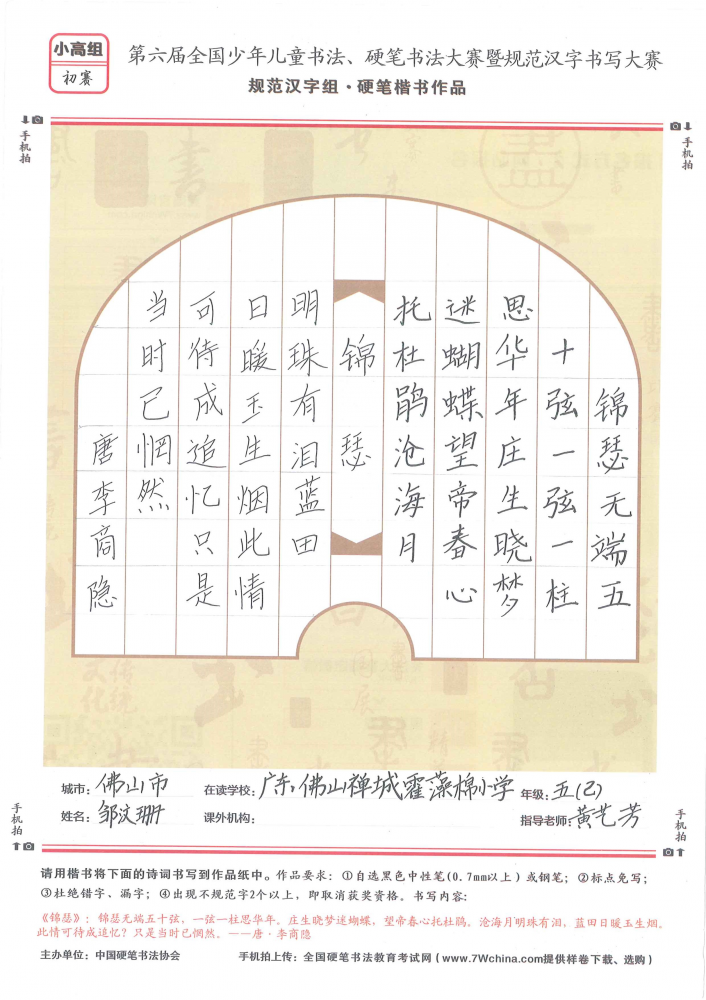 小高组
初赛
第六届全国少年儿童书法、硬笔书法大赛暨规范汉字书写大赛
规范汉字组·硬笔楷书作品
手机拍
手机拍
锦瑟无端五
十弦一弦一柱
思华年庄生晓梦
迷蝴蝶望帝春心
托杜鹃沧海月
锦瑟
明珠有泪蓝田
日暖玉生烟此情
可待成追忆只是
当时已惘然
唐李商隐
城市:佛山市
在读学校:广东佛山禅城霍藻棉小学
年级:五(2)
姓名:邹汶珊
课外机构:
指导老师:黄艺芳
手机拍
手机拍
请用楷书将下面的诗词书写到作品纸中。作品要求:①自选黑色中性笔(0.7mm以上)或钢笔;②标点免写;
③杜绝错字、漏字;④出现不规范字2个以上,即取消获奖资格。书写内容:
《锦瑟》:锦瑟无端五十弦,一弦一柱思华年。庄生晓梦迷蝴蝶,望帝春心托杜鹃。沧海月明珠有泪,蓝田日暖玉生烟。
此情可待成追忆?只是当时已惘然。——唐·李商隐
主办单位:中国硬笔书法协会
手机拍上传:全国硬笔书法教育考试网(www.7Wchina.com提供样卷下载、选购)